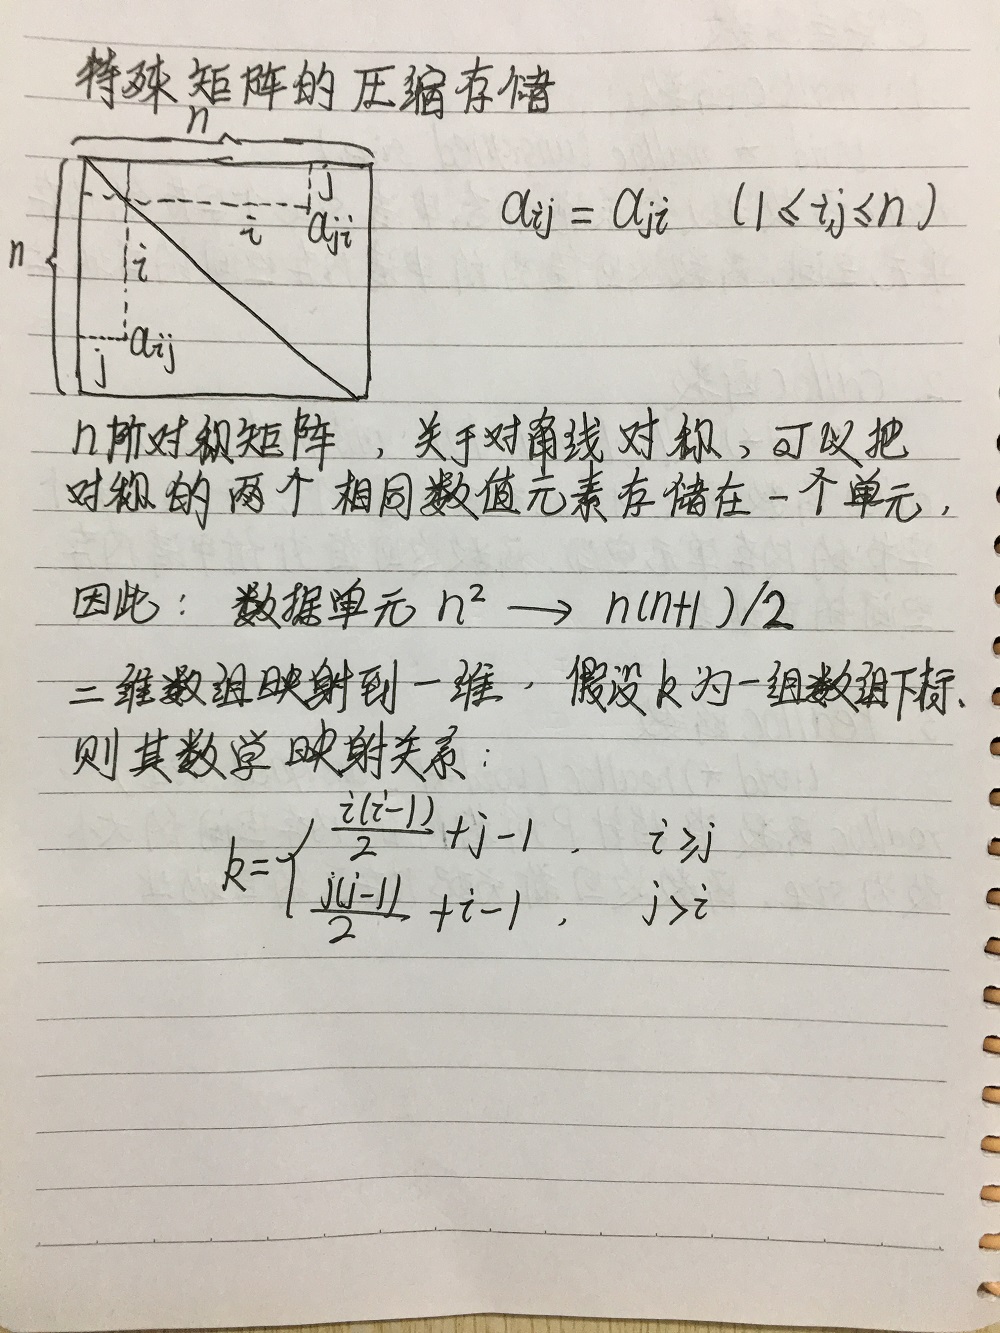 特殊矩阵的压缩存储
n
n
j
i
aji
i
aij
j
aij = aji (1≤i,j≤n)
n阶对称矩阵，关于对角线对称，可以把
对称的两个相同数值元素存储在一个单元，
因此：数据单元 n² → n(n+1)/2
二维数组映射到一维，假设k为一组数组下标、
则其数学映射关系：
k= { i(i-1)/2 +j-1 ， i≥j
j(j-1)/2 +i-1 ， j>i